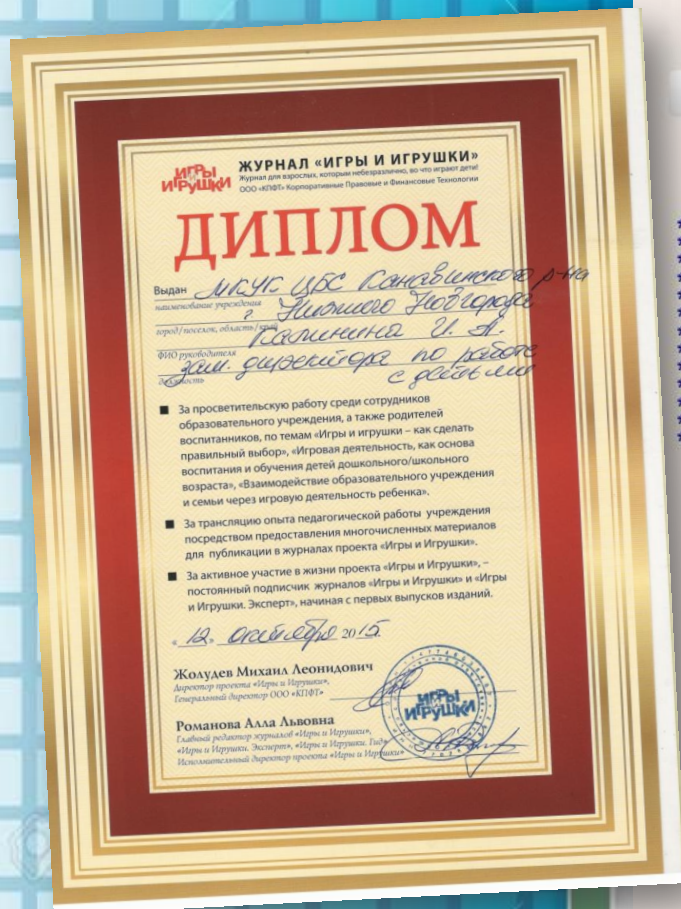 ИГРЫ И ИГРУШКИ
ЖУРНАЛ «ИГРЫ И ИГРУШКИ»
Журнал для взрослых, которым небезразлично, во что играют дети!
ООО «КПФТ» Корпоративные Правовые и Финансовые Технологии
ДИПЛОМ
Выдан МКУК ЦБС Канавинского р-на
наименование учреждения
г. Нижнего Новгорода
город/поселок, область/край
Калинина И. А.
ФИО руководителя
зам. директора по работе
должность
с детьми
■ За просветительскую работу среди сотрудников
образовательного учреждения, а также родителей
воспитанников, по темам «Игры и игрушки – как сделать
правильный выбор», «Игровая деятельность, как основа
воспитания и обучения детей дошкольного/школьного
возраста», «Взаимодействие образовательного учреждения
и семьи через игровую деятельность ребенка».
■ За трансляцию опыта педагогической работы учреждения
посредством предоставления многочисленных материалов
для публикации в журналах проекта «Игры и Игрушки».
■ За активное участие в жизни проекта «Игры и Игрушки», –
постоянный подписчик журналов «Игры и Игрушки» и «Игры
и Игрушки. Эксперт», начиная с первых выпусков изданий.
«12» октября 2015
Жолудев Михаил Леонидович
Директор проекта «Игры и Игрушки»,
Генеральный директор ООО «КПФТ»
Романова Алла Львовна
Главный редактор журналов «Игры и Игрушки»,
«Игры и Игрушки. Эксперт», «Игры и Игрушки. Гид»
Исполнительный директор проекта «Игры и Игрушки»
ИГРЫ И ИГРУШКИ